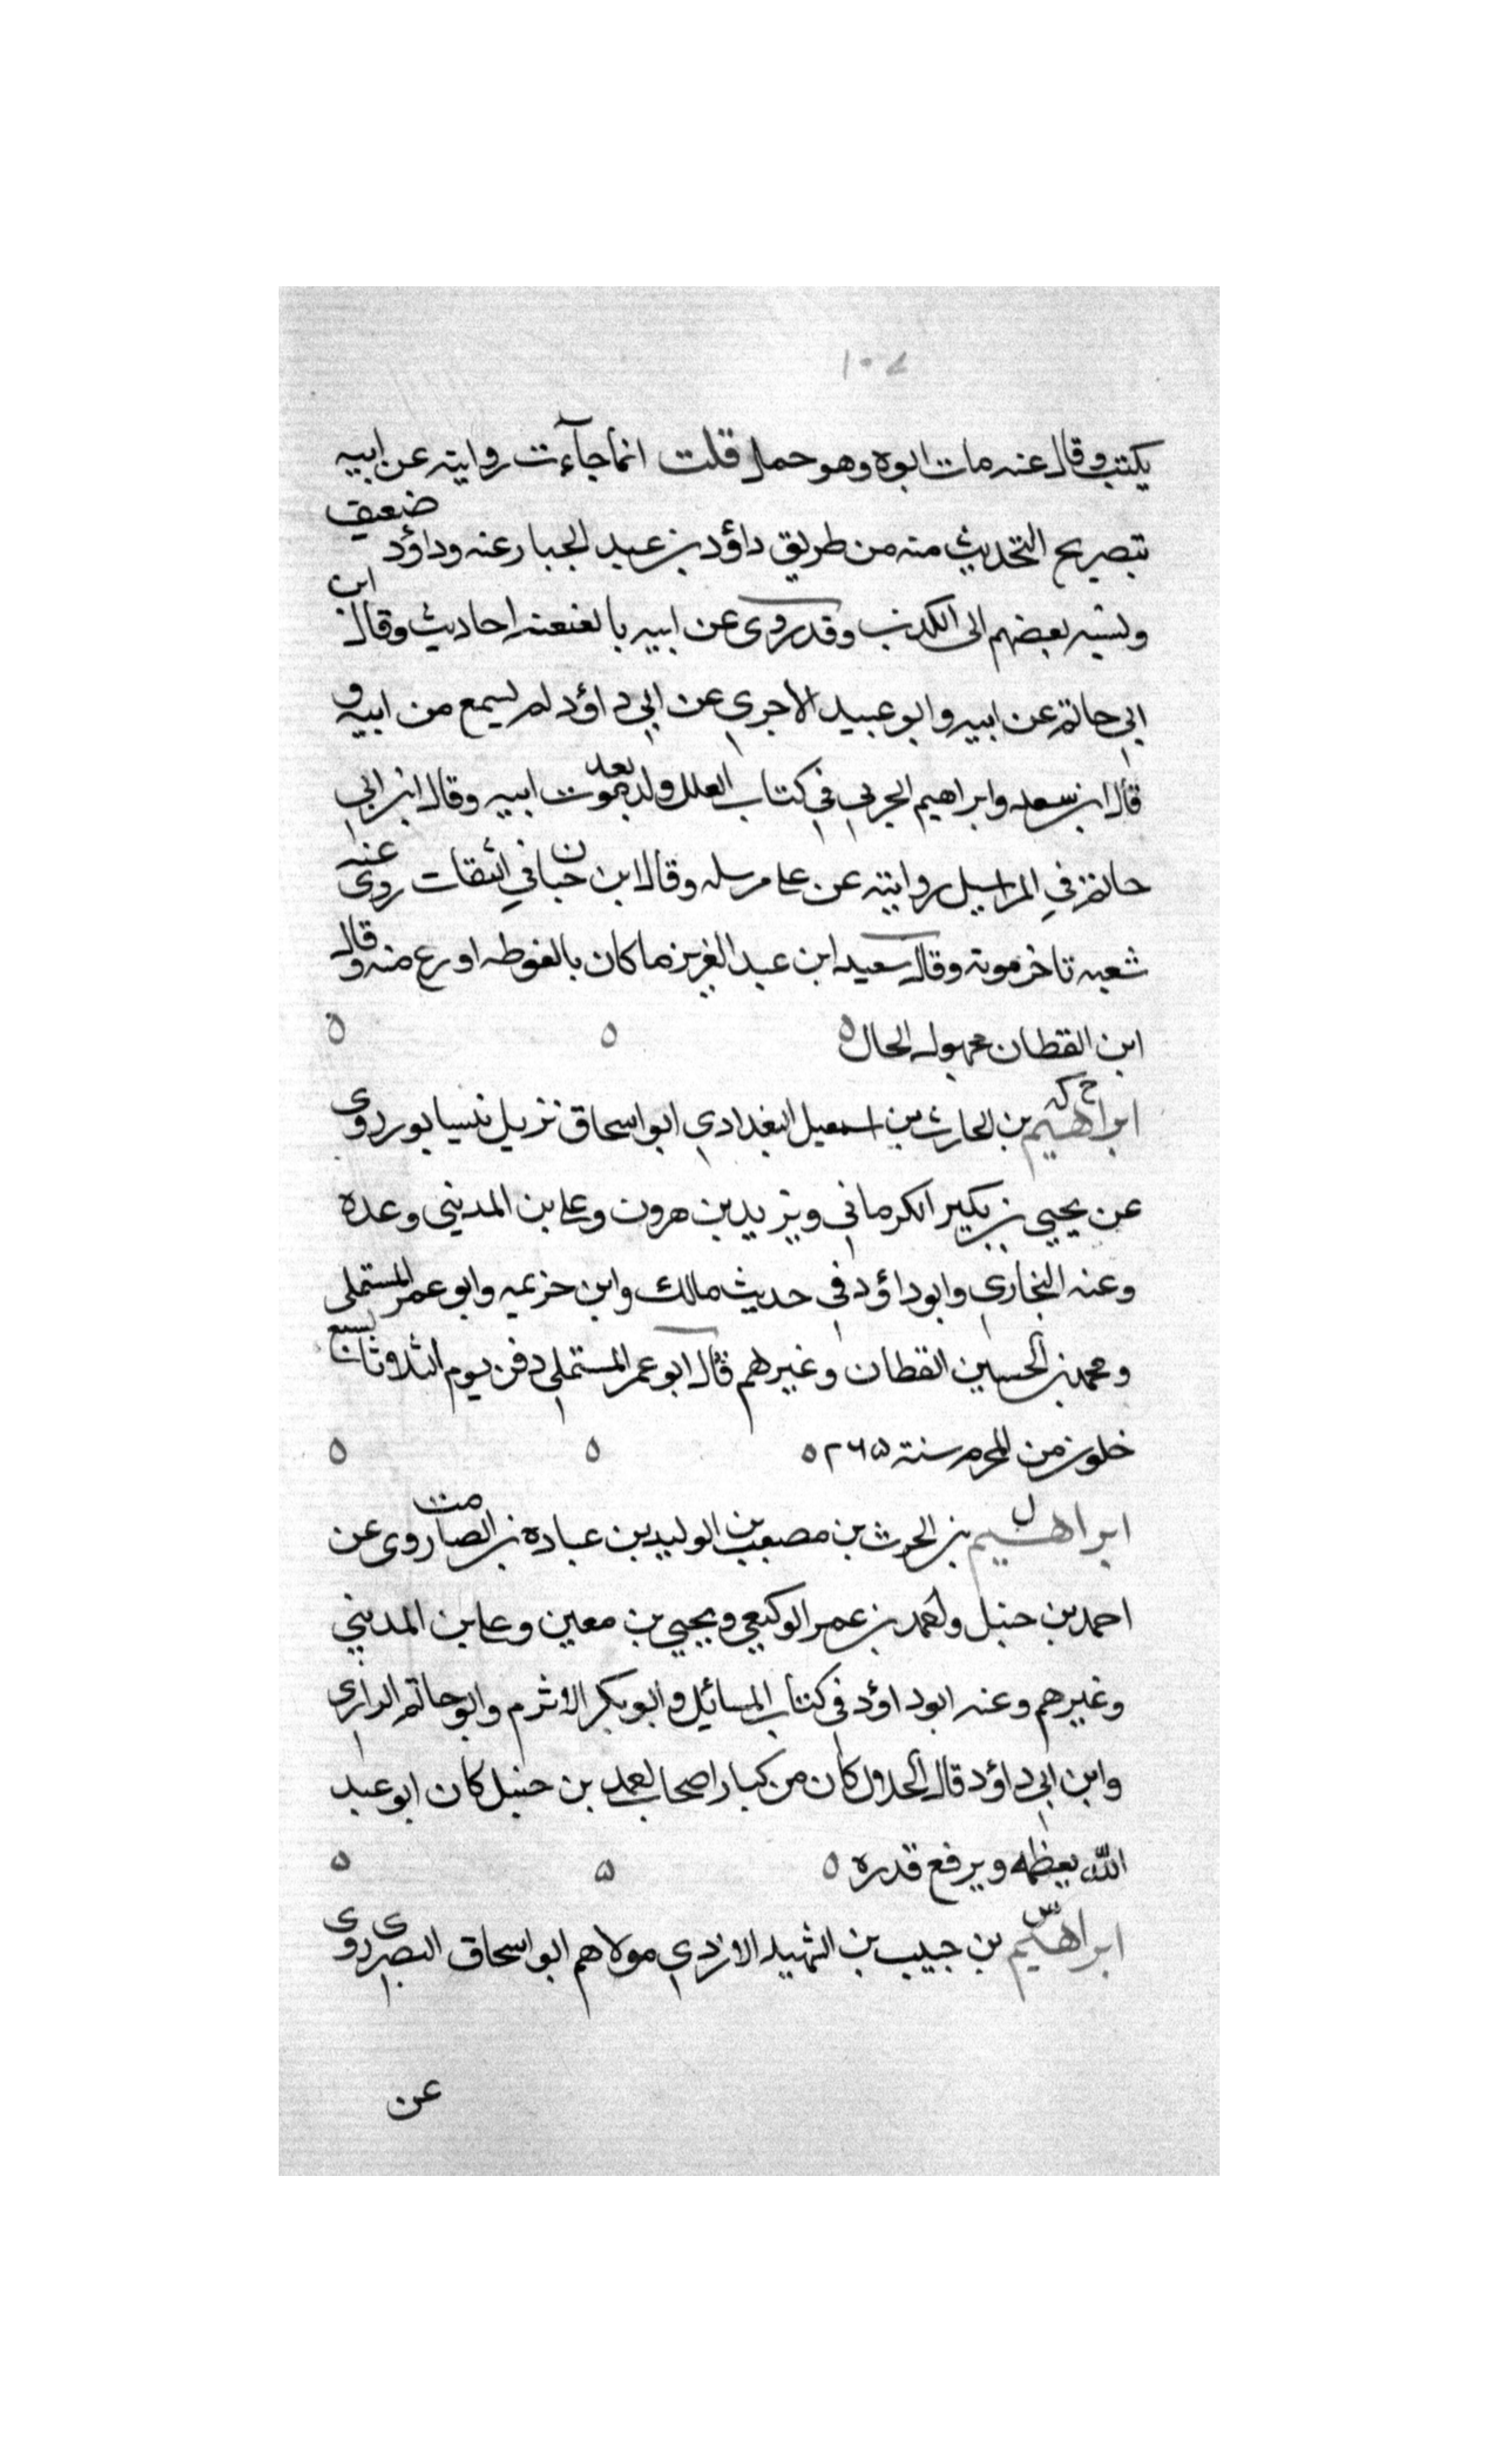 ١٠٧
يكتب وقال عنه مات ابوه وهو حمل قلت انما جاءت روايته عن ابيه
بتصريح التحديث منه من طريق داؤد بن عبد الجبار عنه وداؤد ضعيف
ونسبه بعضهم الى الكذب وقد روى عن ابيه بالعنعنه احاديث وقال ابن
ابي حاتم عن ابيه وابو عبيد الاجري عن ابي داؤد لم يسمع من ابيه و
قال ابن سعد وابراهيم الحربي في كتاب العلل ولد بعد موت ابيه وقال ابن ابي
حاتم في المراسيل روايته عن علي مرسله وقال ابن حبان في الثقات روى عنه
شعبه تاخر موته وقال سعيد ابن عبد العزيز ما كان بالغوطه اورع منه وقال
ابن القطان مجهول الحال ٥ ٥ ٥
ابراهيم خ كد بن الحارث بن اسمعيل البغدادي ابو اسحاق نزيل نيسابور روى
عن يحيى بن بكير الكرماني ويزيد بن هرون وعلي بن المديني وعده
وعنه البخاري وابو داؤد في حديث مالك وابن خزيمه وابو عمر المستملي
ومحمد بن الحسين القطان وغيرهم قال ابو عمر المستملي دفن يوم الثلاثا لسبع
خلون من المحرم سنة ٢٦٥ ٥ ٥ ٥
ابراهيم ل بن الحرث بن مصعب بن الوليد بن عباده بن الصامت روى عن
احمد بن حنبل واحمد بن عمر الوكيعي ويحيى بن معين وعلي بن المديني
وغيرهم وعنه ابو داؤد في كتاب المسائل وابو بكر الاثرم وابو حاتم الرازي
وابن ابي داؤد قال الخلال كان من كبار اصحاب احمد بن حنبل كان ابو عبد
الله يعظمه ويرفع قدره ٥ ٥ ٥
ابراهيم س بن حبيب بن الشهيد الازدي مولاهم ابو اسحاق البصرى روى
عن